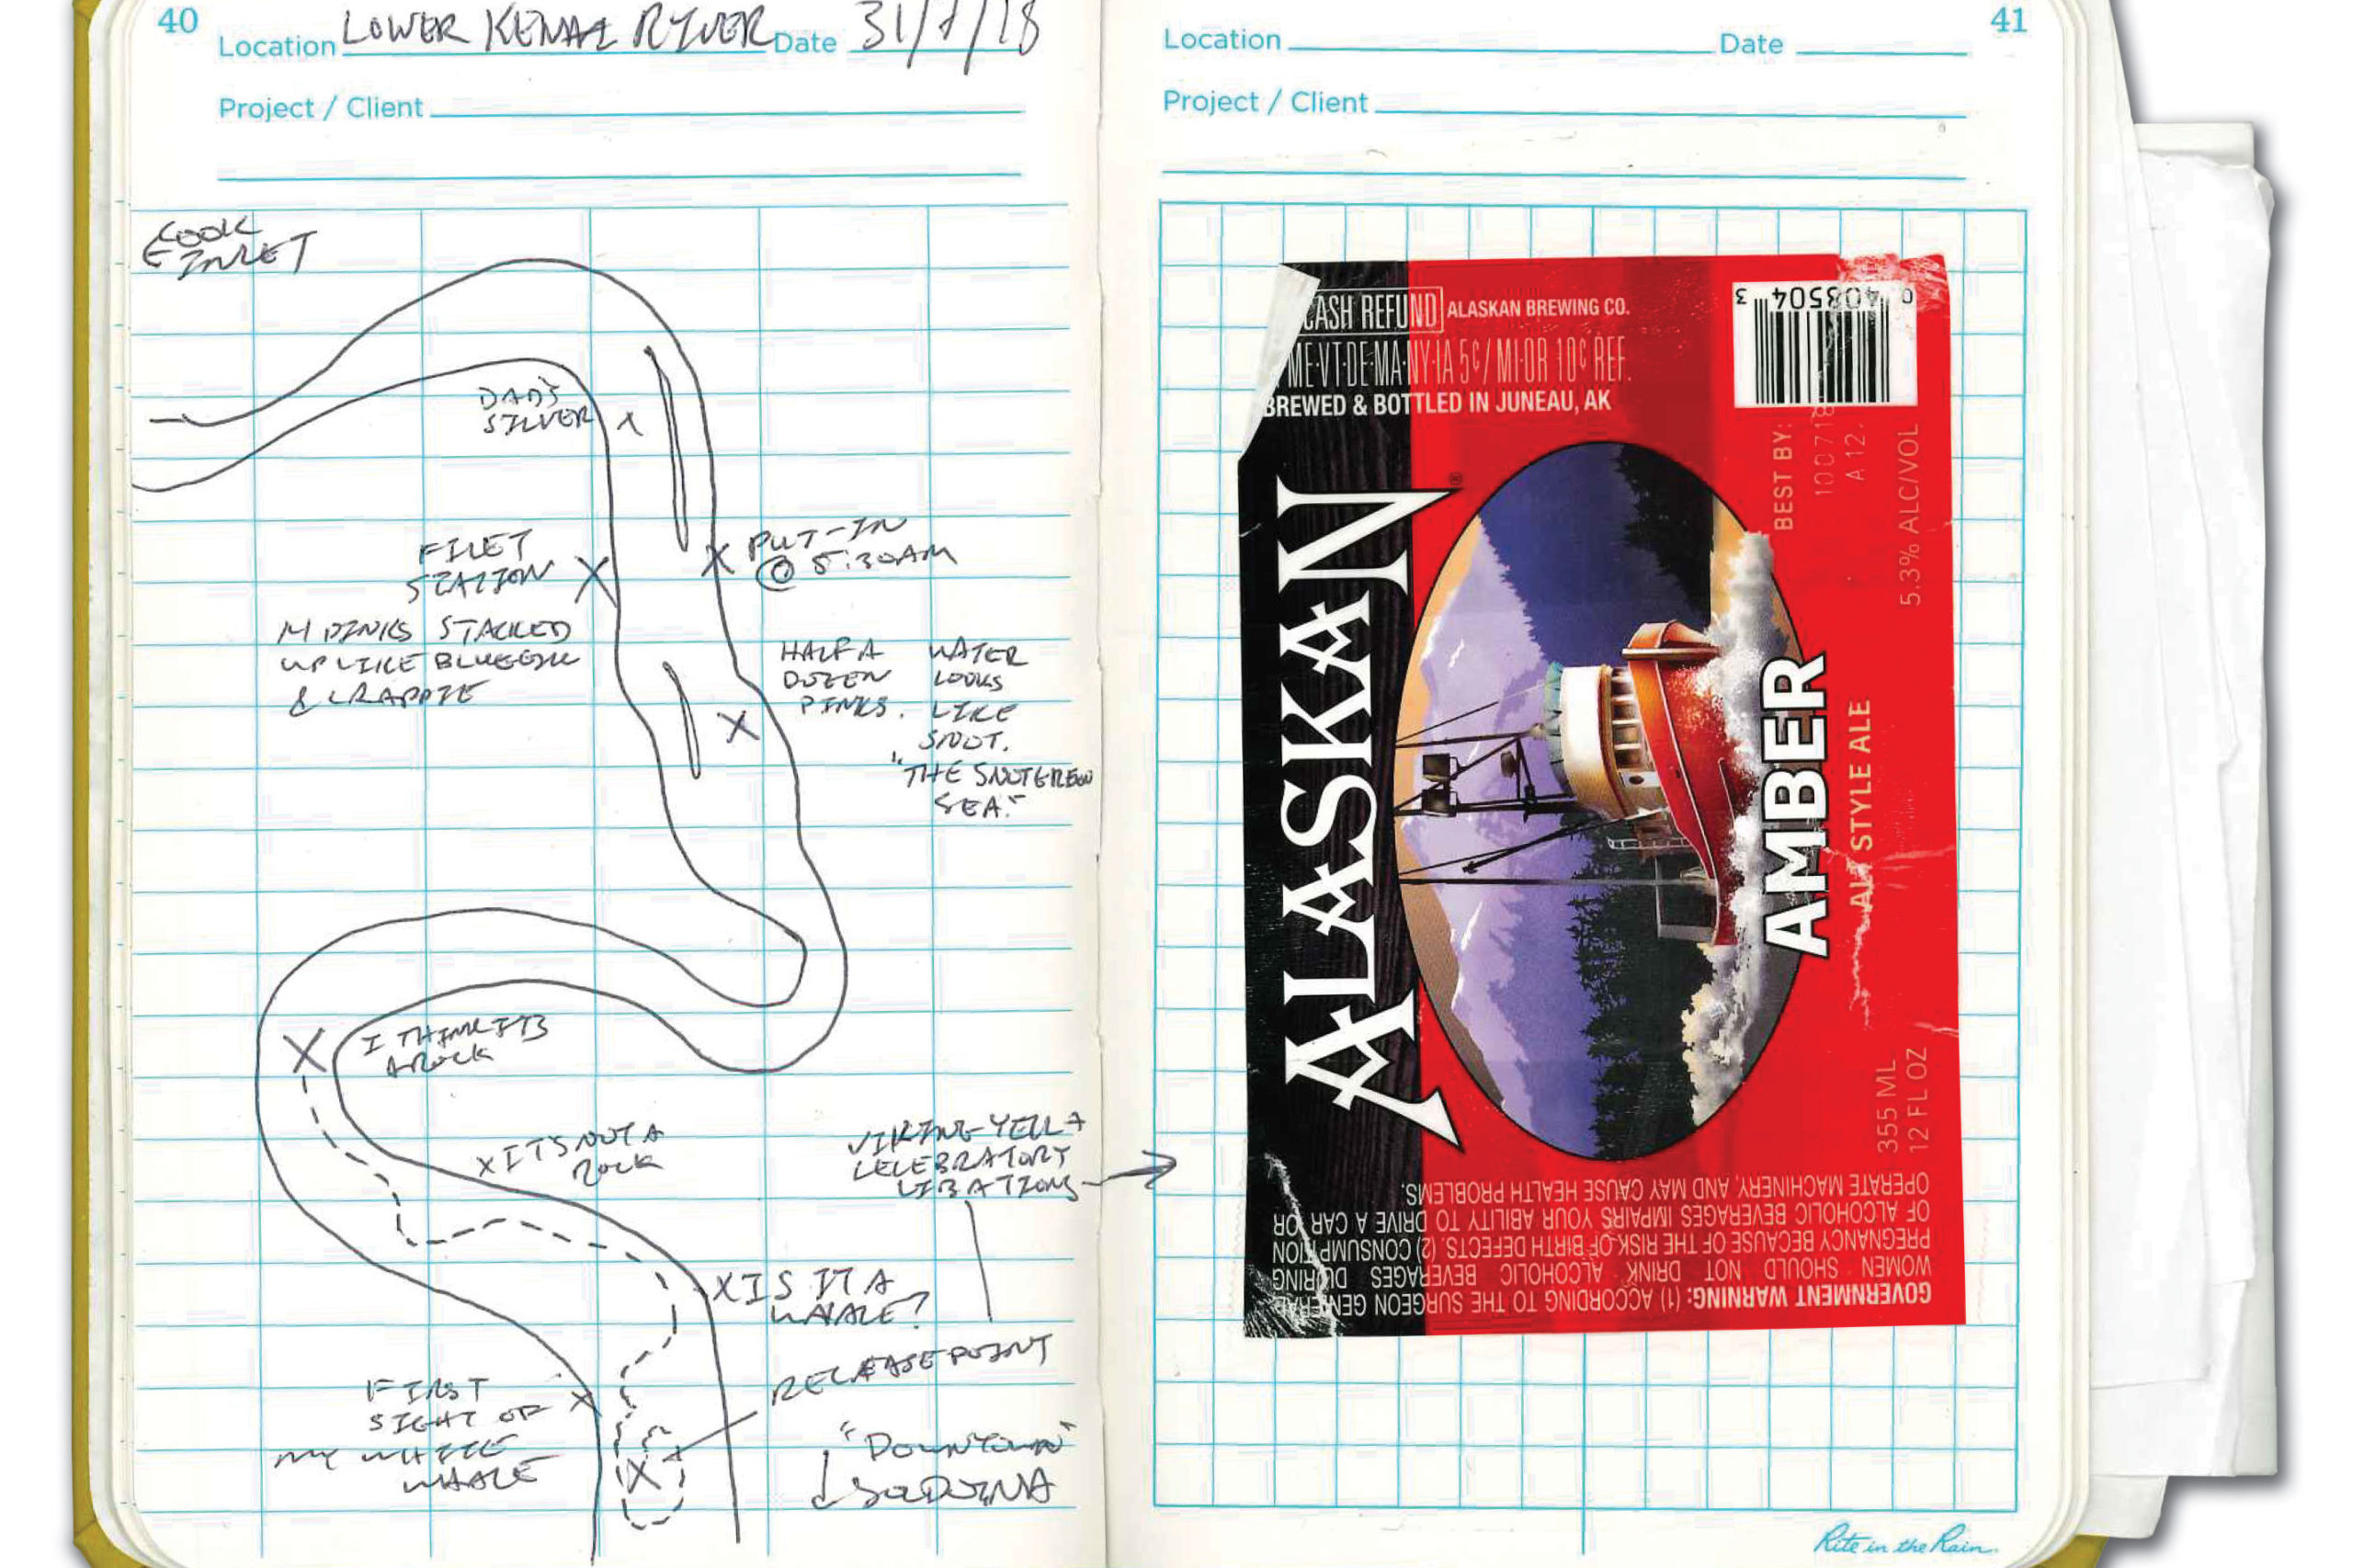 40
Location LOWER KENAI RIVER Date 31/7/18
Project / Client
COOK
INLET
DAD'S
SILVER
FILET
STATION
PUT-IN
@ 5:30AM
STACKED
UP LIKE BLUEGILL
& CRAPPIE
HALF A
DOZEN
PINKS.
WATER
LOOKS
LIKE
SNOT.
"THE SNOTGREEN
SEA."
I THINK IT'S
A ROCK
X IT'S NOT A
ROCK
VIKING-YELL +
CELEBRATORY
LIBATIONS
X IS IT A
WHALE?
RELEASE POINT
FIRST
SIGHT OF
MY WHITE
WHALE
"DOWNTOWN"
SOLDOTNA
41
Location Date
Project / Client
CASH REFUND ALASKAN BREWING CO.
ME·VT·DE·MA·NY·IA 5¢/ MI·OR 10¢ REF.
BREWED & BOTTLED IN JUNEAU, AK
ALASKAN®
AMBER
ALT STYLE ALE
BEST BY:
100718
A 12.
5.3% ALC/VOL
355 ML
12 FL OZ
GOVERNMENT WARNING: (1) ACCORDING TO THE SURGEON GENERAL
WOMEN SHOULD NOT DRINK ALCOHOLIC BEVERAGES DURING
PREGNANCY BECAUSE OF THE RISK OF BIRTH DEFECTS. (2) CONSUMPTION
OF ALCOHOLIC BEVERAGES IMPAIRS YOUR ABILITY TO DRIVE A CAR OR
OPERATE MACHINERY, AND MAY CAUSE HEALTH PROBLEMS.
Rite in the Rain